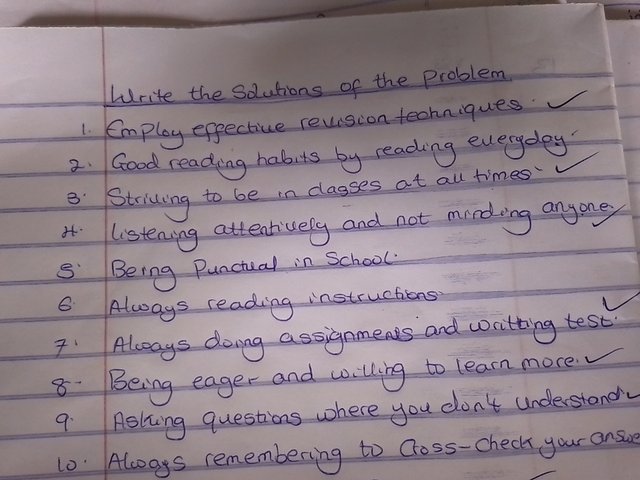 Write the Solutions of the Problem.
1. Employ effective revision techniques.
2. Good reading habits by reading everyday.
3. Striving to be in classes at all times.
4. Listening attentively and not minding anyone.
5. Being Punctual in School.
6. Always reading instructions.
7. Always doing assignments and writting test.
8. Being eager and willing to learn more.
9. Asking questions where you don't understand.
10. Always remembering to Cross-Check your answe